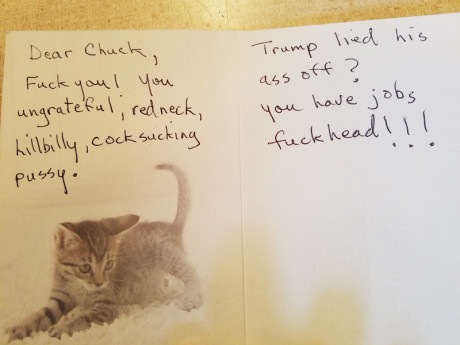 Dear Chuck,
Fuck you! You
ungrateful, redneck,
hillbilly, cocksucking
pussy.
Trump lied his
ass off?
you have jobs
fuckhead!!!